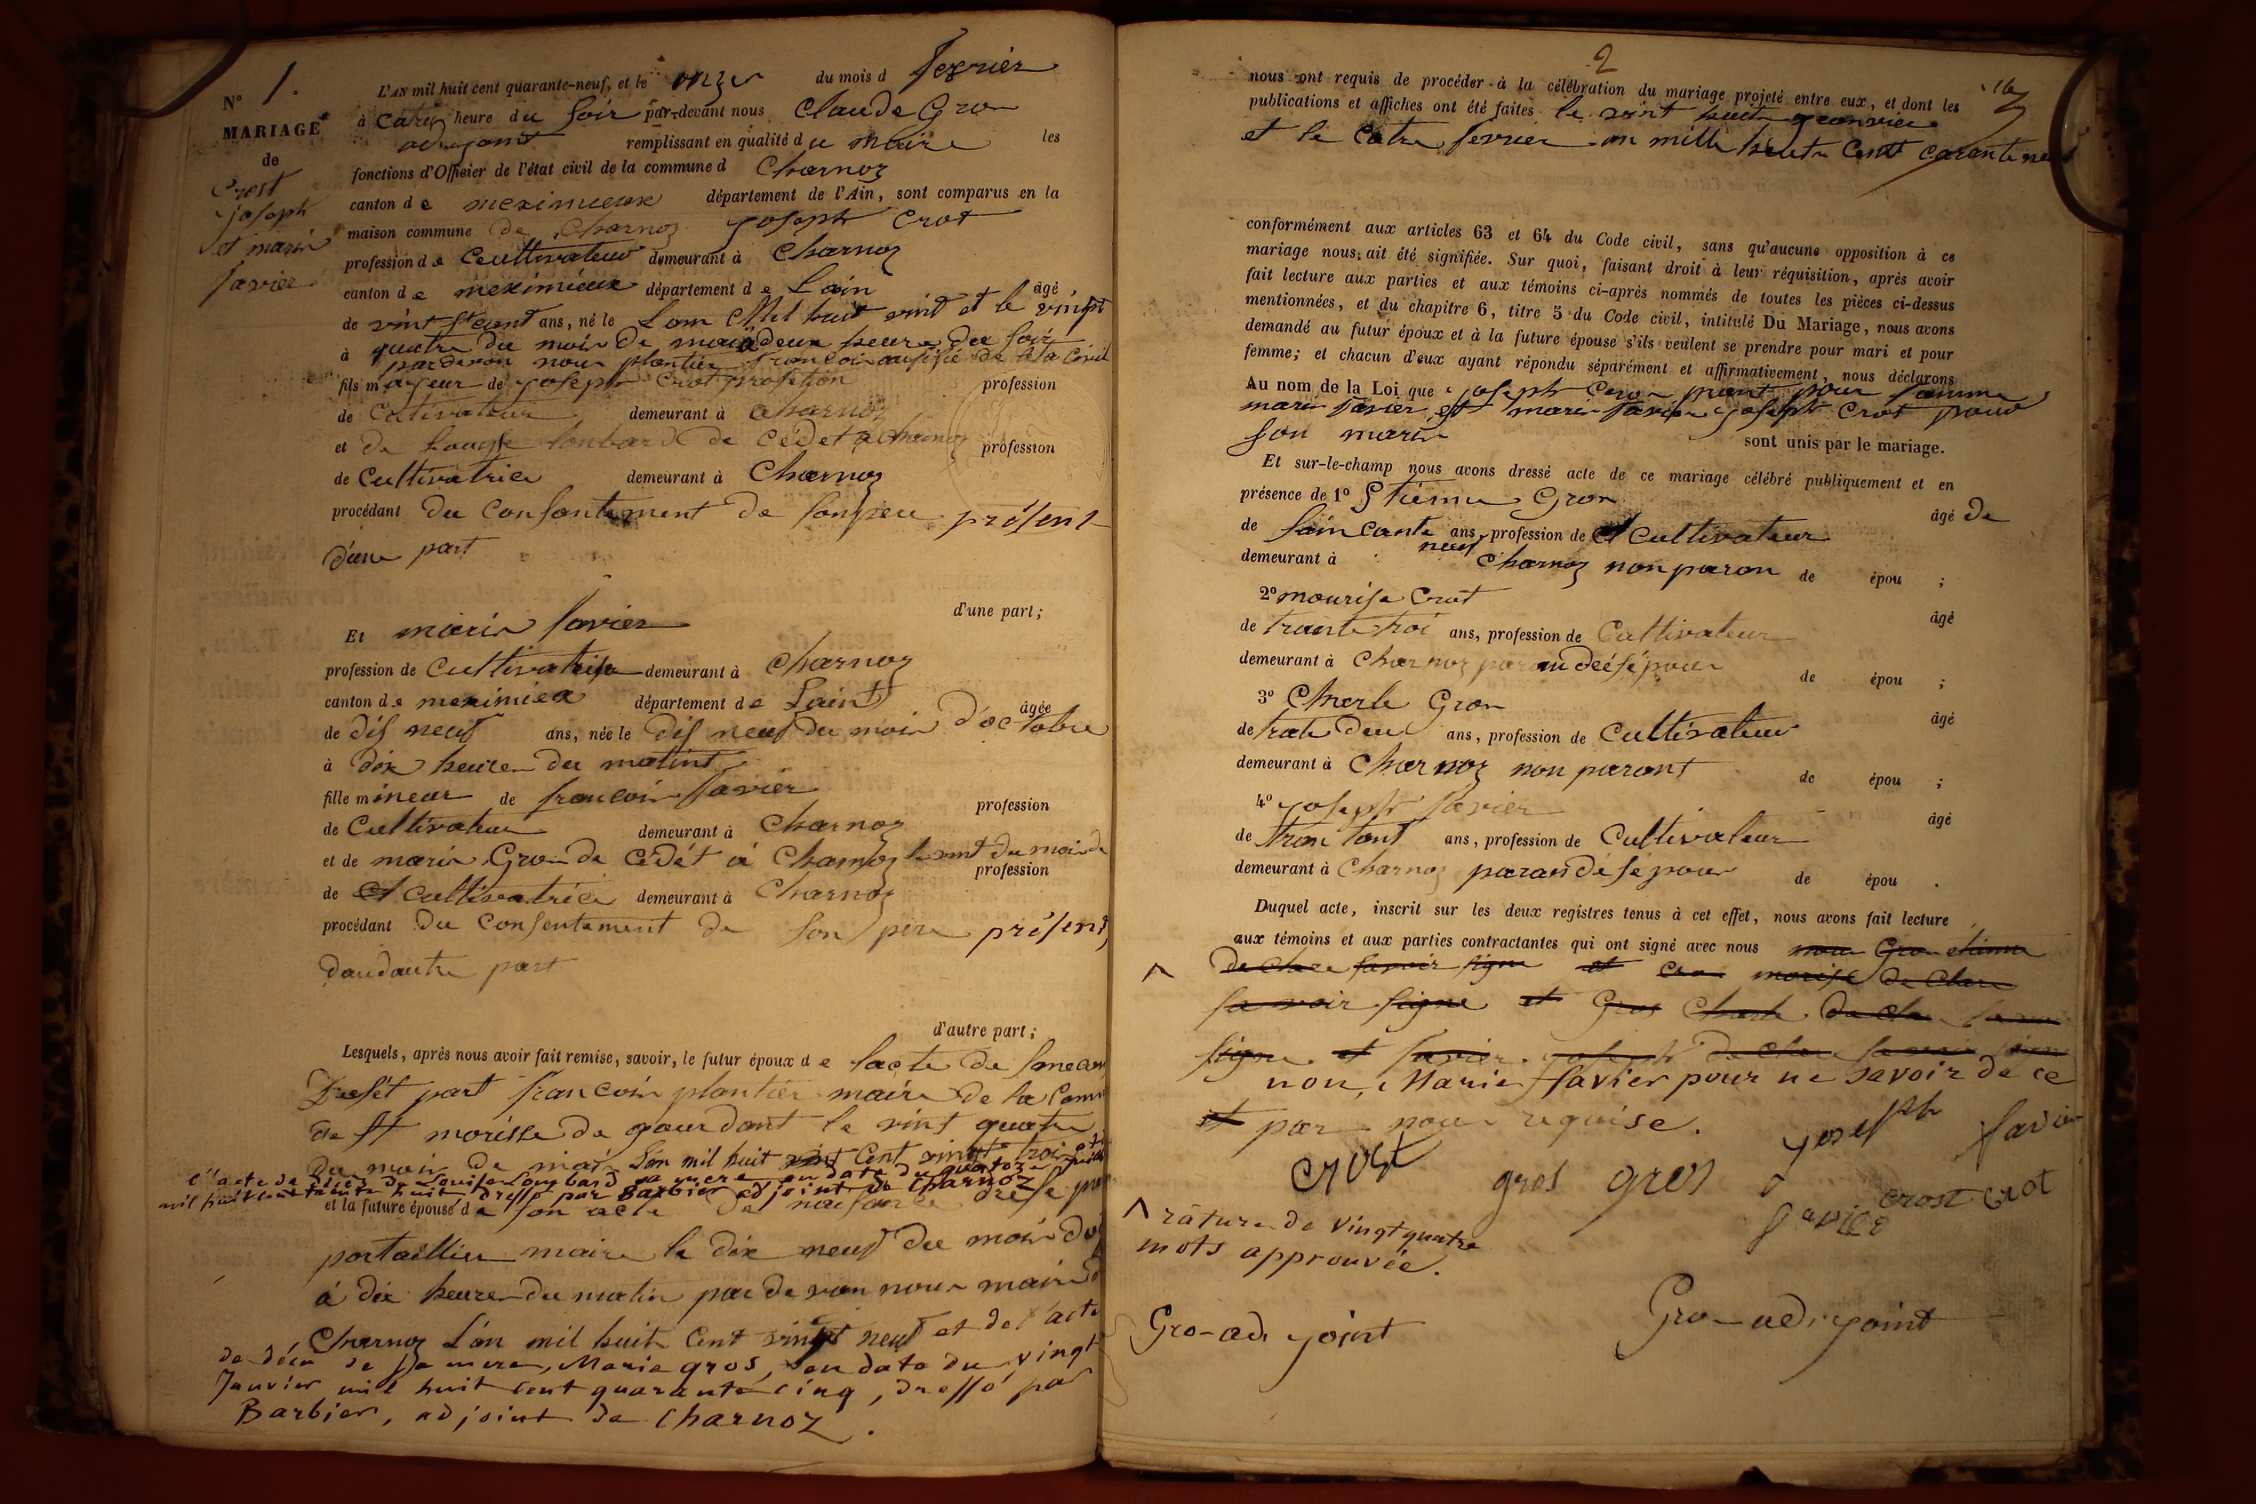 N° 1.
MARIAGE
de
Crost
joseph
et marie
favier
L'AN mil huit cent quarante-neuf, et le onze du mois d fevrier
à catre heure du soir par-devant nous Claude Gro
adjoint remplissant en qualité du maire les
fonctions d'Officier de l'état civil de la commune d Charnoz
canton de meximieux département de l'Ain, sont comparus en la
maison commune de Charnoz joseph Crot
profession de Cultivateur demeurant à Charnoz
canton de meximieux département de Lain âgé
de vint ans, né le Lan Mil huit vint et le vingt
à quatre du mois de mai à deux heure du soir
parderan nous plantier francois de la Civil
fils majeur de joseph Crot profetion profession
de Cultivateur demeurant à Charnoz
et de Louise lonbard de cédet a charnoz profession
de Cultivatrice demeurant à Charnoz
procédant du consantement de son pere présent
d'une part
d'une part;
Et marie favier
profession de Cultivatrise demeurant à Charnoz
canton de meximiea département de Laint âgée
de dis neuf ans, née le dis neuf du mois d'octobre
à dix heure du matint
fille mineur de francois favier profession
de Cultivateur demeurant à Charnoz
et de marie Gro de cédét à Charnoz le vint du mois de profession
de Cultivatrice demeurant à Charnoz
procédant du consentement de son père présent,
daudautre part
d'autre part;
Lesquels, après nous avoir fait remise, savoir, le futur époux de lacte de
part francois plantier maire de la Com
de St morisse de gourdant le vint quatre
du mois de mai Lan mil huit cent vingt trois et
l'acte de décès de Louise Lombard sa mere en date du quatorze
mil huit cent trente huit dressé par Barbier adjoint de Charnoz
et la future épouse de son acte de naisance dresé par
portaillier maire le dix neuf du mois d'o
à dix heure du matin par de van nous maire d
Charnoz Lan mil huit Cent vingt neuf et de l'acte
de décès de sa mere, Marie gros, en date du vingt
Janvier mil huit cent quarante cinq, dressé par
Barbier, adjoint de Charnoz.
2
nous ont requis de procéder à la célébration du mariage projeté entre eux, et dont les
publications et affiches ont été faites le vint huit janvier
et le catre fevrier an mille huite Cent carante neuf
conformément aux articles 63 et 64 du Code civil, sans qu'aucune opposition à ce
mariage nous ait été signifiée. Sur quoi, faisant droit à leur réquisition, après avoir
fait lecture aux parties et aux témoins ci-après nommés de toutes les pièces ci-dessus
mentionnées, et du chapitre 6, titre 5 du Code civil, intitulé Du Mariage, nous avons
demandé au futur époux et à la future épouse s'ils veulent se prendre pour mari et pour
femme; et chacun d'eux ayant répondu séparément et affirmativement, nous déclarons
Au nom de la Loi que joseph Cro prant pour famme
marie favier et marie favier joseph Crot pour
son marie sont unis par le mariage.
Et sur-le-champ nous avons dressé acte de ce mariage célébré publiquement et en
présence de 1° Stienne Gron âgé de
de sain cante neuf ans, profession de Cultivateur
demeurant à Charnoz non paran de épou ;
2° mourise Crot âgé
de trante troi ans, profession de Cultivateur
demeurant à Charnoz de épou ;
3° Cherle Gron âgé
de trate deu ans, profession de Cultivateur
demeurant à Charnoz non parant de épou ;
4° joseph favier âgé
de ans, profession de Cultivateur
demeurant à Charnoz de épou .
Duquel acte, inscrit sur les deux registres tenus à cet effet, nous avons fait lecture
aux témoins et aux parties contractantes qui ont signé avec nous non Gro etienne
de clare savoir signe et Cro morise de clare
sa voir signe et Gros Charle de cla
signe et favier joseph de clare savoir signe
non, Marie favier pour ne savoir de ce
et par nous requise.
joseph favier
Crost gros gros
favier crost crot
^ râture de vingt quatre
mots approuvée.
Gro-ad joint
Gro-adjoint